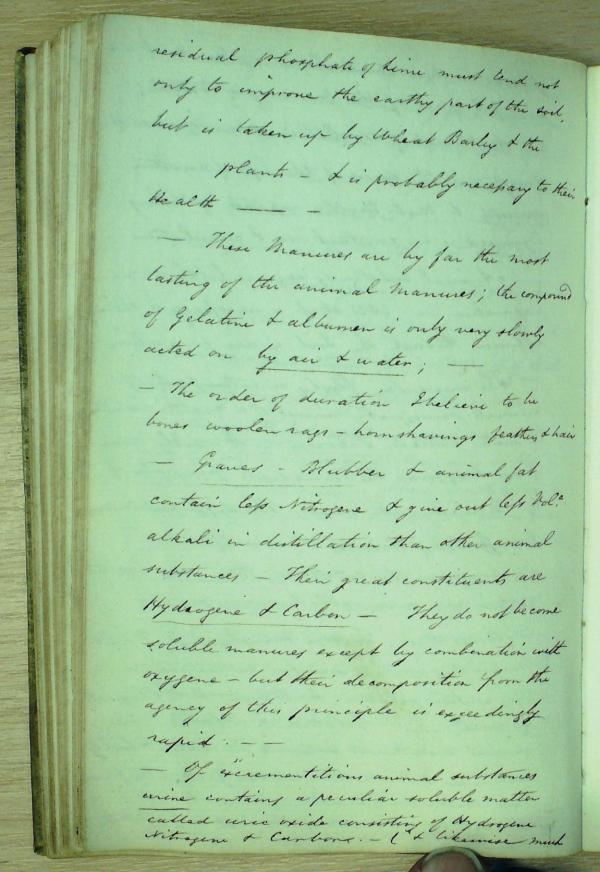 residual phosphate of lime must tend not
only to improve the earthy part of the soil,
but is taken up by Wheat Barley & the
plants - & is probably necessary to their
Health —— -
— These Manures are by far the most
lasting of the animal Manures; the compound
of Gelatine & albumen is only very slowly
acted on by air & water; —
— The order of duration I believe to be
bones woolen rags - horn shavings feathers & hair
— Graves - Blubber & animal fat
contain less Nitrogene & give out less Vol.e
alkali in distillation than other animal
substances — Their great constituents are
Hydrogene & Carbon — They do not become
soluble manures except by combination with
oxygene - but their decomposition from the
agency of this principle is exceedingly
rapid. — —
— Of excrementitious animal substances
urine contains a peculiar soluble matter
called uric oxide consisting of Hydrogene
Nitrogene & Carbone. — & likewise much